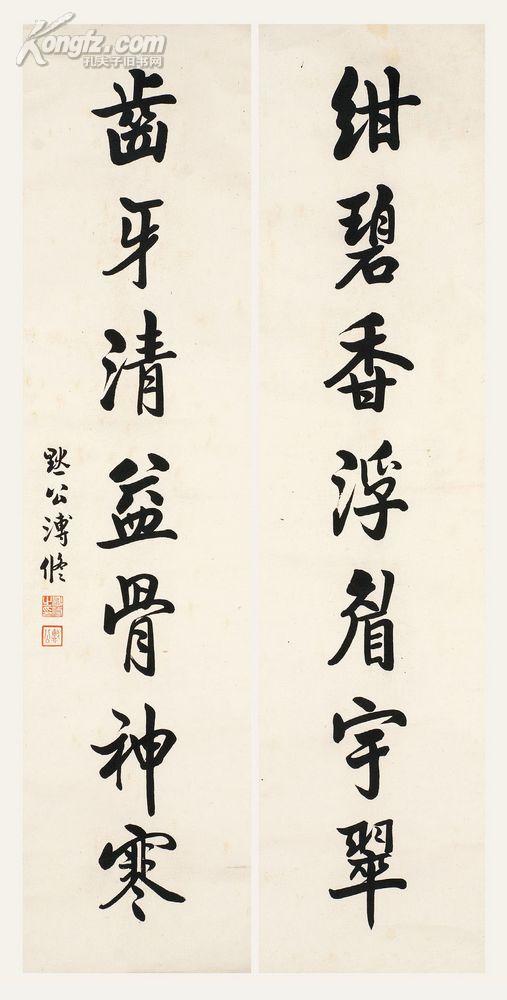 Kongfz.com
孔夫子旧书网
紺碧香浮眉宇翠
齒牙清益骨神寒
默公溥修